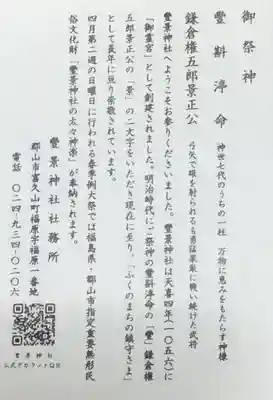 御祭神
豐斟渟命　神世七代のうちの一柱　万物に恵みをもたらす神様
鎌倉権五郎景正公　弓矢で眼を射られるも勇猛果敢に戦い続けた武将
豐景神社へようこそお参りくださいました。豐景神社は天喜四年(一〇五六)に
「御霊宮」として創建されました。明治時代にご祭神の豐斟渟命の「豐」鎌倉権
五郎景正公の「景」の二文字をいただき現在に至り、「ふくのまちの鎮守さま」
として長年に亘り崇敬されています。
四月第二週の日曜日に行われる春季例大祭では福島県・郡山市指定重要無形民
俗文化財「豐景神社の太々神楽」が奉納されます。
豐景神社社務所
郡山市富久山町福原字福原一番地
電話　〇二四-九三四-〇二〇六
豊景神社
公式デカウント QR